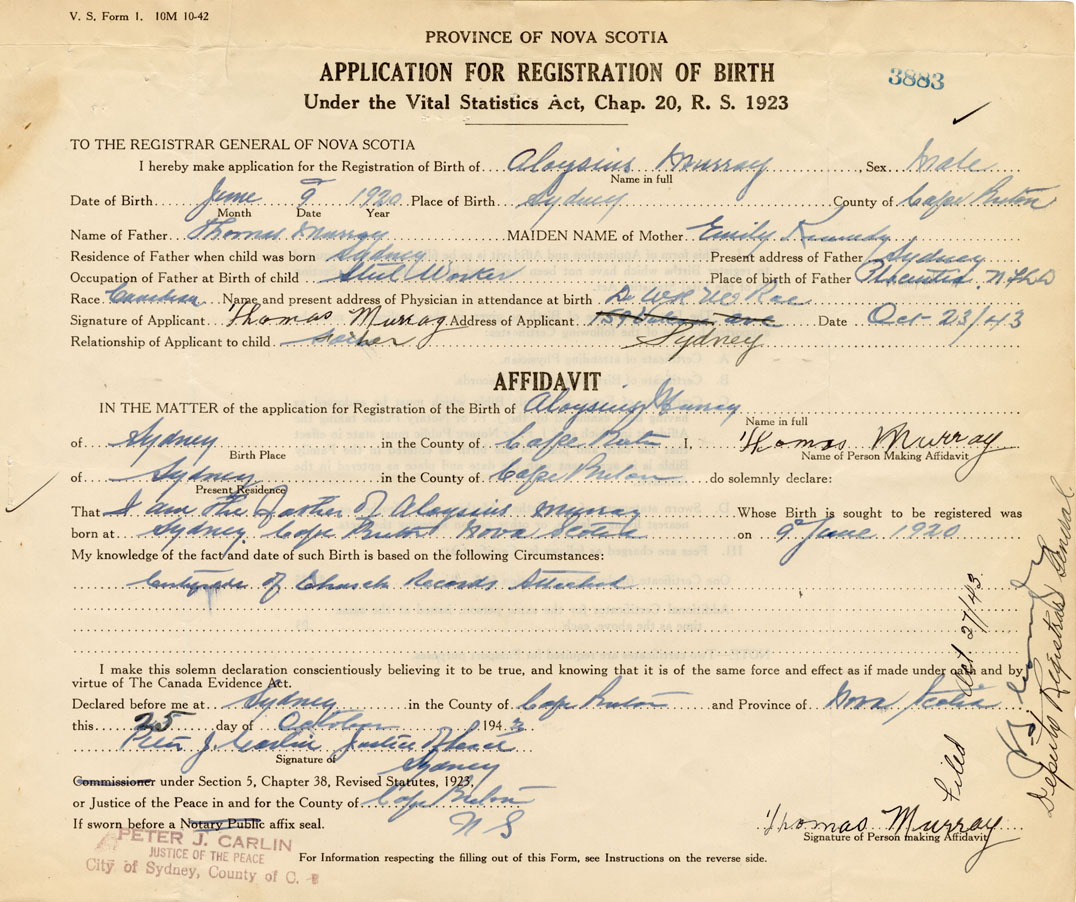 V. S. Form 1. 10M 10-42
PROVINCE OF NOVA SCOTIA
APPLICATION FOR REGISTRATION OF BIRTH
3883
Under the Vital Statistics Act, Chap. 20, R. S. 1923
TO THE REGISTRAR GENERAL OF NOVA SCOTIA
I hereby make application for the Registration of Birth of Aloysius Murray, Sex Male
Name in full
Date of Birth June 9 1920 Place of Birth Sydney County of Cape Breton
Month Date Year
Name of Father Thomas Murray MAIDEN NAME of Mother Emily Kennedy
Residence of Father when child was born Sydney Present address of Father Sydney
Occupation of Father at Birth of child Steel Worker Place of birth of Father Placentia, Nfld
Race Canadian Name and present address of Physician in attendance at birth Dr
Signature of Applicant Thomas Murray Address of Applicant 159 ave Date Oct 23/43
Sydney
Relationship of Applicant to child Father
AFFIDAVIT
IN THE MATTER of the application for Registration of the Birth of Aloysius Murray
Name in full
of Sydney in the County of Cape Breton I, Thomas Murray
Birth Place Name of Person Making Affidavit
of Sydney in the County of Cape Breton do solemnly declare:
Present Residence
That I am the father of Aloysius Murray Whose Birth is sought to be registered was
born at Sydney Cape Breton Nova Scotia on 9 June 1920
My knowledge of the fact and date of such Birth is based on the following Circumstances:
Certificate of Church Records Attached
I make this solemn declaration conscientiously believing it to be true, and knowing that it is of the same force and effect as if made under oath and by
virtue of The Canada Evidence Act.
Declared before me at Sydney in the County of Cape Breton and Province of Nova Scotia
this 25 day of October 1943
Peter J. Carlin Justice of Peace
Signature of
Sydney
Commissioner under Section 5, Chapter 38, Revised Statutes, 1923,
or Justice of the Peace in and for the County of Cape Breton
If sworn before a Notary Public affix seal. N S
Thomas Murray
Signature of Person making Affidavit
PETER J. CARLIN
JUSTICE OF THE PEACE
City of Sydney, County of C. B
For Information respecting the filling out of this Form, see Instructions on the reverse side.
Filed Oct. 27/43.
Deputy Registrar General.